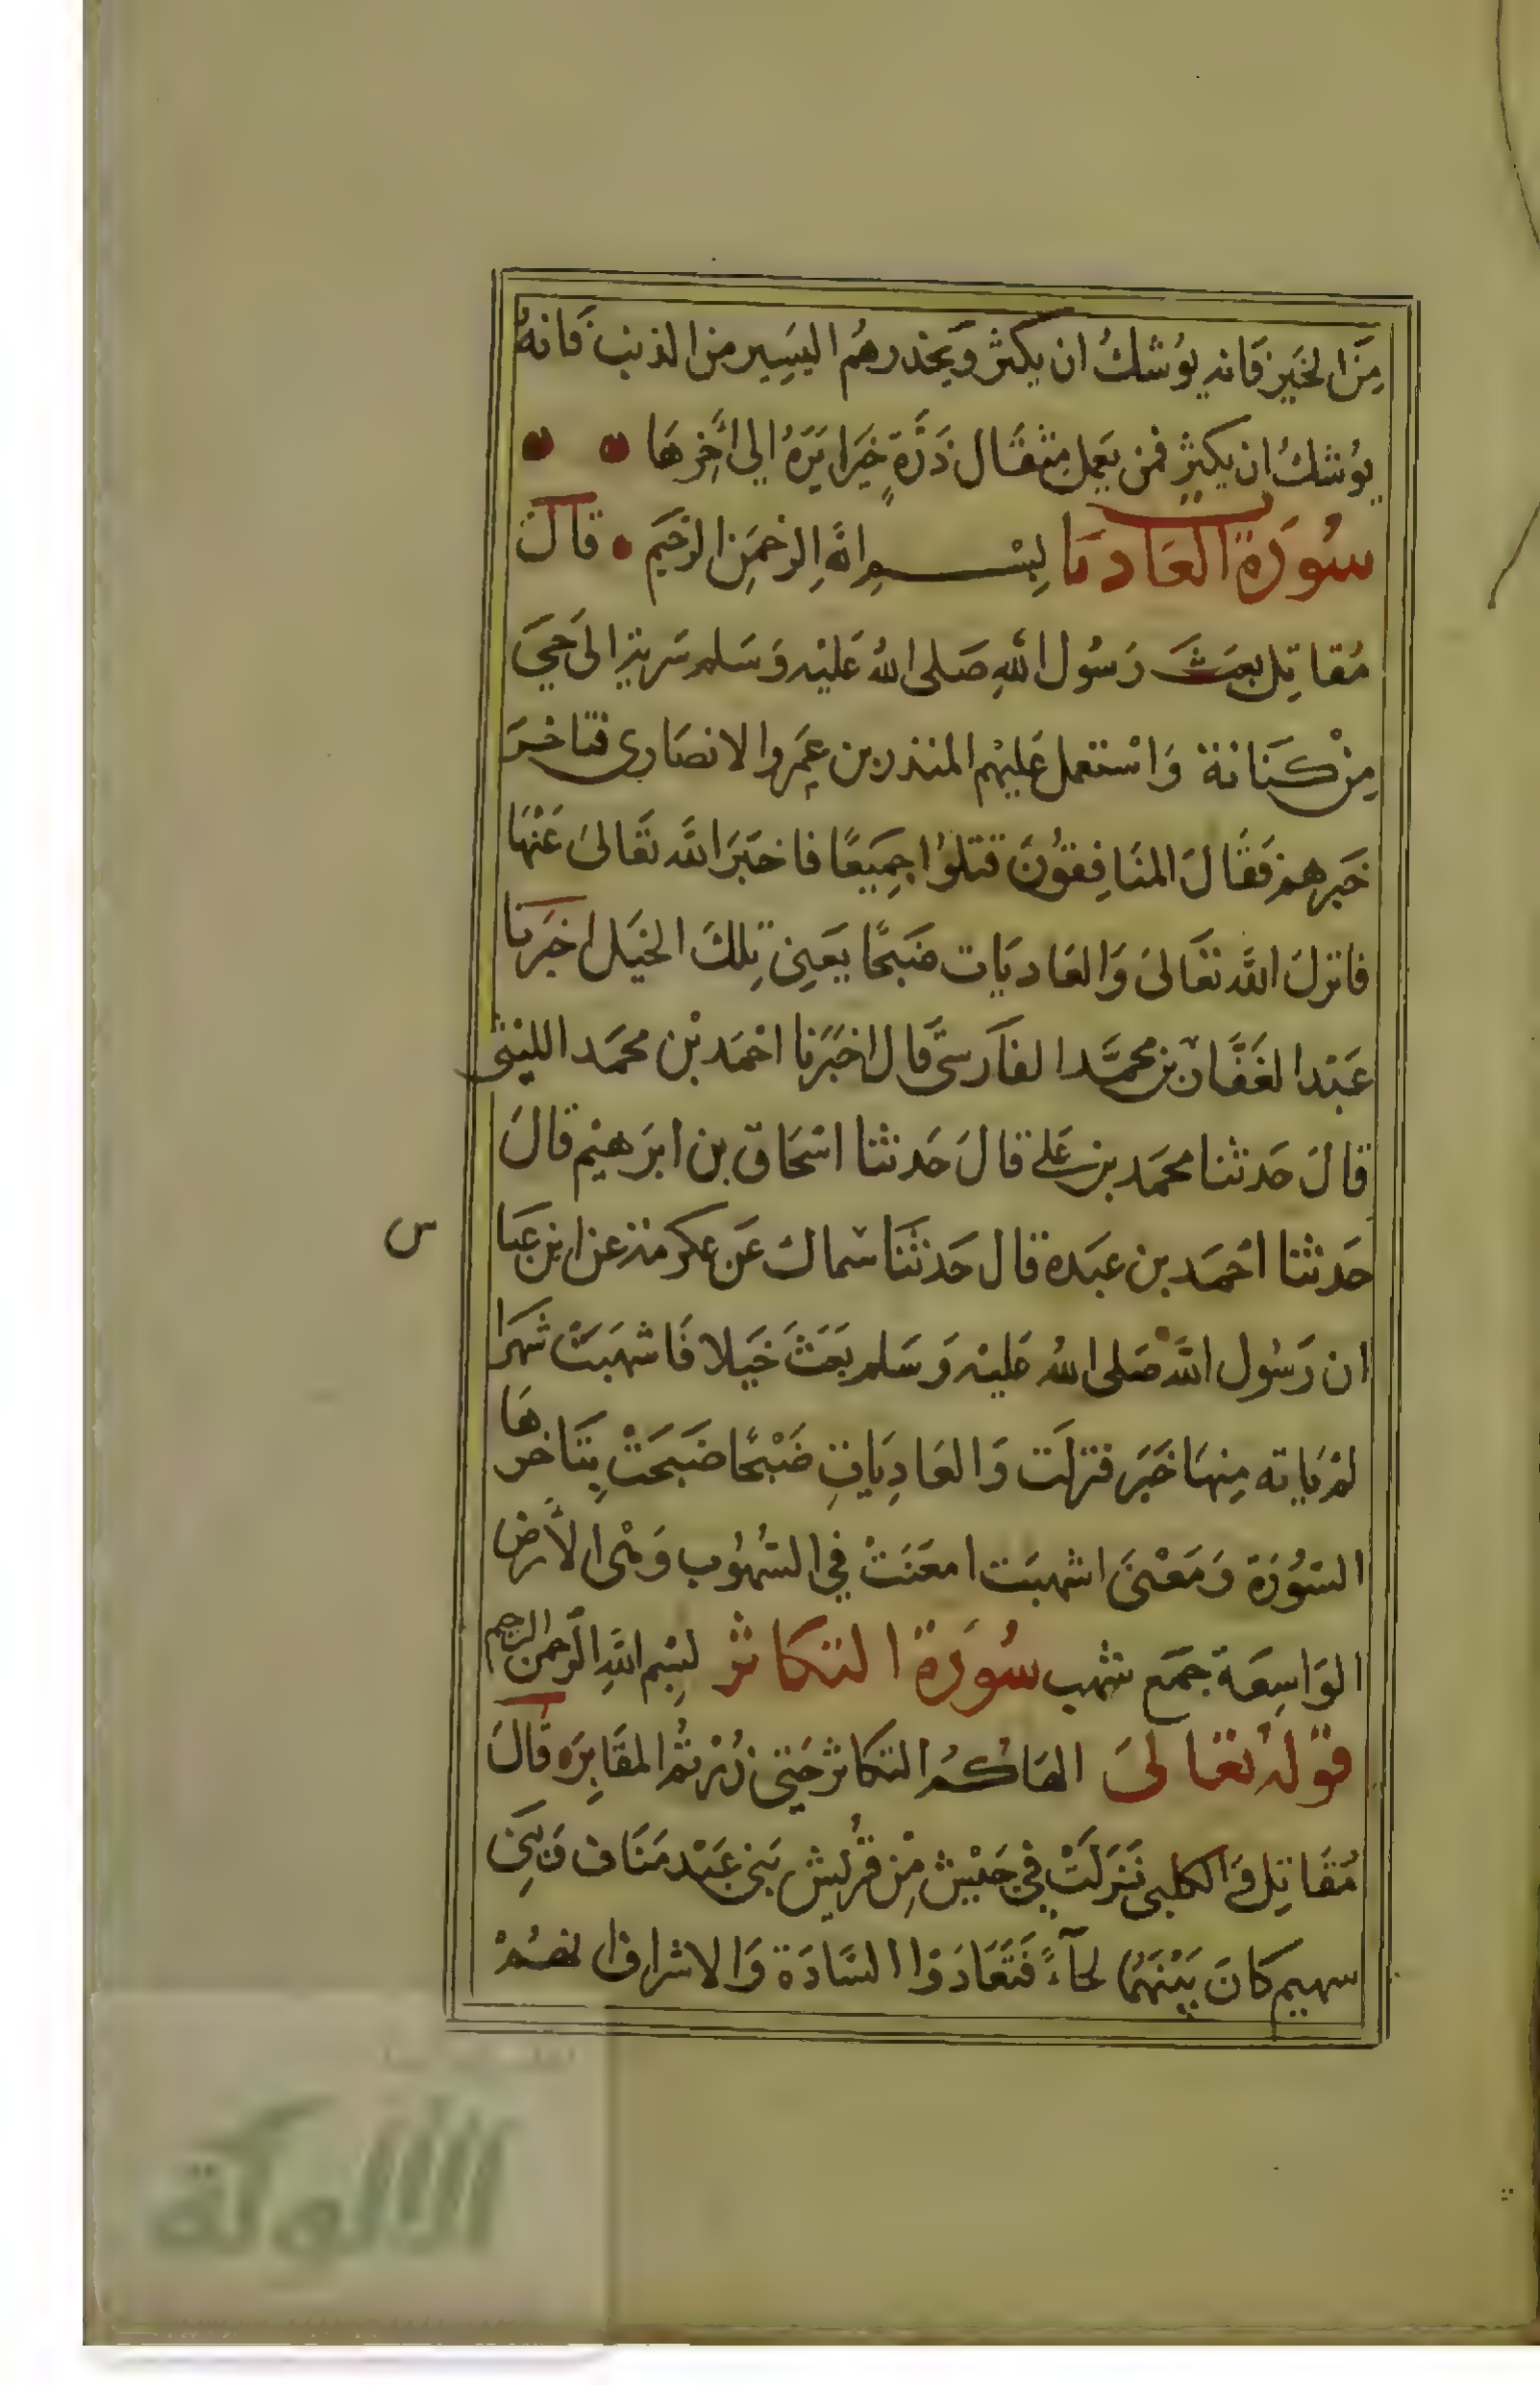 مِنَ الخَيرِ فَانه يُوشكُ ان يكثر وَيحذرهُم اليَسِير من الذنب فَانهُ
يُوشكُ ان يكثر فمن يَعمل مِثقَال ذَرَّةٍ خَيرا يَرَهُ الي اخِرهَا
سُورَة العَاديَات بِسْم اللهِ الرحمَنِ الرحَيم قَالَ
مُقاتِل بعَثَ رَسُول اللهِ صَلى اللهُ عَليْه وَسَلم سَرية الىَ حَيَ
مِنْ كنَانة وَاسْتعمل عَليْهم المنذر بن عمِرو الانصَاري فتاخرَ
خَبرهم فَقَالَ المنَافِقوُنَ قتلوُا جمِيَعًا فاخبَرَ اللهَ تَعَالىَ عَنْهَا
فانزلَ اللهَ تعَالىَ وَالعَاديَات ضَبحًا يَعنِى تِلكَ الخيَل اخبَرنا
عَبْد الغَفَّار بن محمَّد الفاَرسىَّ قَال اخبَرَنا احْمَد بْن محمَد الليْثى
قالَ حَدثنا محمَد بن عَلى قالَ حَدثنا اسْحَاق بن ابرَهيْم قالَ
حَدثنا احمَد بن عبَده قال حَدثنَا سْماك عَن عكرمة عن ابن عَبا
س
ان رَسُول اللهَ صَلى اللهُ عَليْه وَسَلم بَعَثَ خَيَلا فَاشهَبَتْ شهَرا
لمْ يَاته مِنهَا خَبَر فنزلَت وَالعَادِيَاتِ ضَبْحًا ضَبَحَتْ بِمَنَاخرهَا
السُّورَة وَمَعْنىَ اشهبَت امعَنَتْ في السُهُوب وَهْى الاَرض
الوَاسِعَة جمَع شهب سُورَة التكاثر بِسْم اللهِ الرَّحمن الرحيم
قولهُ تعَالىَ الهَاكمُ التكاثر حَتىَ زُرْتمُ المقَابِرَ قَالَ
مُقَاتِل وَ الكلبى نَزَلَتْ فِي حَيَيْن مِنْ قرُيش بَنى عَبْد مَنَاف وَبَنِى
سهيم كَانَ بَيْنَهُمَا لحآءً فَتَعَادَوْا السَّادَة وَالاشراف ايهُمْ
الألوكة